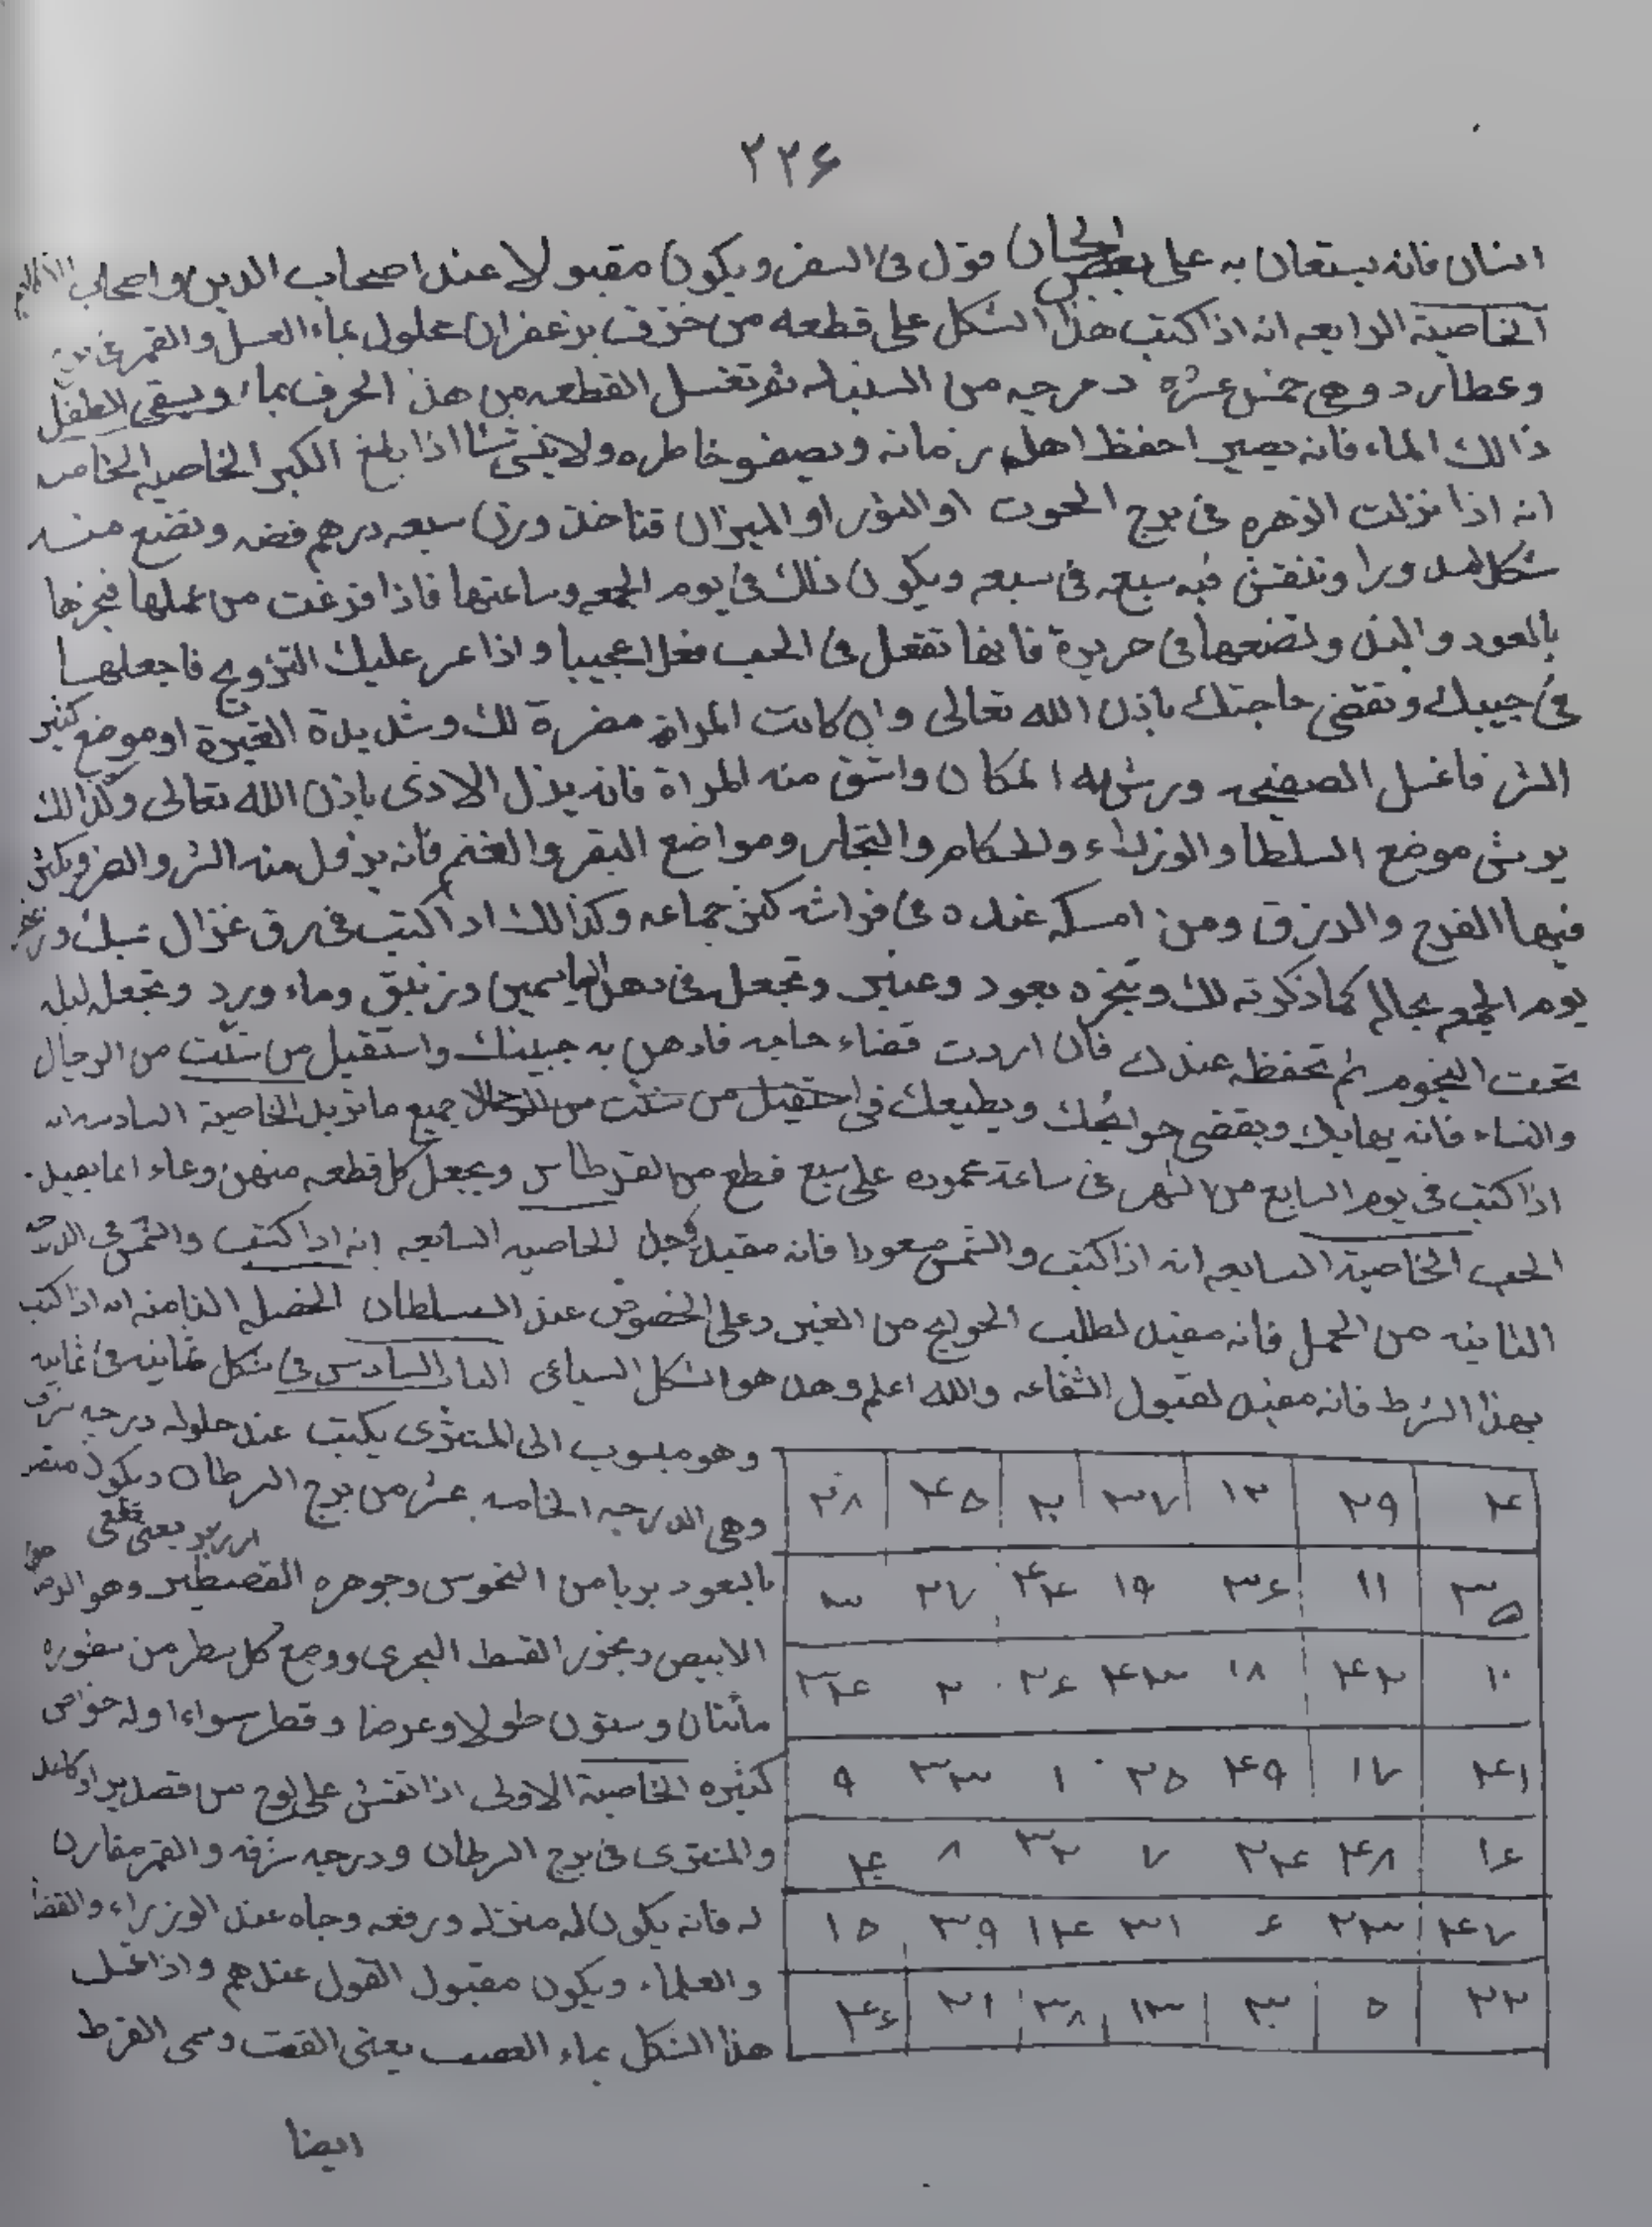 ٢٢۶
انسان فانه يستعان به على بعض الجان قول فى السفر ويكون مقبولا عند اصحاب الدين واصحاب
الخاصية الرابعه انه اذا كتب هذا الشكل على قطعه من خزف بزعفران محلول بماء العسل والقمر
وعطارد وهى خمس عشرة درجه من السنبله ثم تغسل القطعه من هذا الحرف بماء ويسقى الطفل
ذالك الماء فانه يصير احفظ اهل زمانه ويصفو خاطره ولا ينسى شئا اذا بلغ الكبر الخاصيه الخامسه
انه اذا نزلت الزهره فى برج الحوت او الثور او الميزان فتاخذ وزن سبعه درهم فضه وتضع منه
شكل مدورا وتنقش فيه سبعه فى سبعه ويكون ذلك فى يوم الجمعه وساعتها فاذا فرغت من عملها فبخرها
بالعود والند وتضعها فى حريرة فانها تفعل فى الحب فعلا عجيبا واذا عسر عليك التزويج فاجعلها
فى جيبك وتقضى حاجتك باذن الله تعالى وان كانت المراة مضرة لك وشديدة الغيرة او موضع كثير
الشر فاغسل الصفيحه ورش به المكان واسق منه المراة فانه يزل الاذى باذن الله تعالى وكذالك
يرش موضع السلطا والوزراء والحكام والتجار ومواضع البقر والغنم فانه يزول منه الشر والضر ويكثر
فيها الفرح والرزق ومن امسكه عنده فى فراشه كثر جماعه وكذالك اذا كتب فى رق غزال
يوم الجمعه بحاله كما ذكرته لك وتبخره بعود وعنبر وتجعل فى دهن الياسمين وزنبق وماء ورد وتجعل ليله
تحت النجوم ثم تحفظه عندك فان اردت قضاء حاجه فادهن به جبينك واستقبل من شئت من الرجال
والنساء فانه يهابك ويقضى حوائجك ويطيعك فى استقبل من شئت من الرجالا جميع ما تريد الخاصية السادسه انه
اذا كتب فى يوم السابع من الشهر فى ساعة محموده على سبع قطع من القرطاس ويجعل كل قطعه منهن وعاء
الحب الخاصية السابعه انه اذا كتب والشمس صعودا فانه مفيد الخاصيه السابعه انه اذا كتب والشمس فى الدرجه
الثانيه من الحمل فانه مفيد لطلب الحوايج من الغير وعلى الخصوص عند السلطان الخصله الثامنه انه اذا كتب
بهذا الشرط فانه مفيد لقبول الشفاعه والله اعلم وهذا هو الشكل السباعى الباب السادس فى شكل ثمانيه فى ثمانيه
وهو منسوب الى المشترى يكتب عند حلوله درجه شرفه
وهى الدرجه الخامسه عشر من برج السرطان ويكون
يعنى قلعى
بالسعود بريا من النحوس وجوهره القصطير وهو
الابيض وبخور القسط البحرى ووضع كل سطر من سطوره
مأتان وستون طولا وعرضا وقطر سواء وله خواص
كثيره الخاصية الاولى اذا نقش على لوح من قصدير او كاغد
والمشترى فى برج السرطان ودرجه شرفه والقمر مقارن
له فانه يكون له منزله ورفعه وجاه عند الوزيراء والقضا
والعلماء ويكون مقبول القول عندهم واذا غسل
هذا الشكل بماء القصب يعنى القت وسمى القرط
۴ ٢٩ ١٢ ٣٧ ٢٠ ۴۵ ٢٨
٣۵ ١١ ٣۶ ١٩ ۴۴ ٢٧ ٣
١٠ ۴٢ ١٨ ۴٣ ٢۶ ٢ ٣۴
۴١ ١٧ ۴٩ ٢۵ ١ ٣٣ ٩
١۶ ۴٨ ٢۴ ٧ ٣٢ ٨ ۴٠
۴٧ ٢٣ ۶ ٣١ ١۴ ٣٩ ١۵
٢٢ ۵ ٣٠ ١٣ ٣٨ ٢١ ۴۶
ايضا